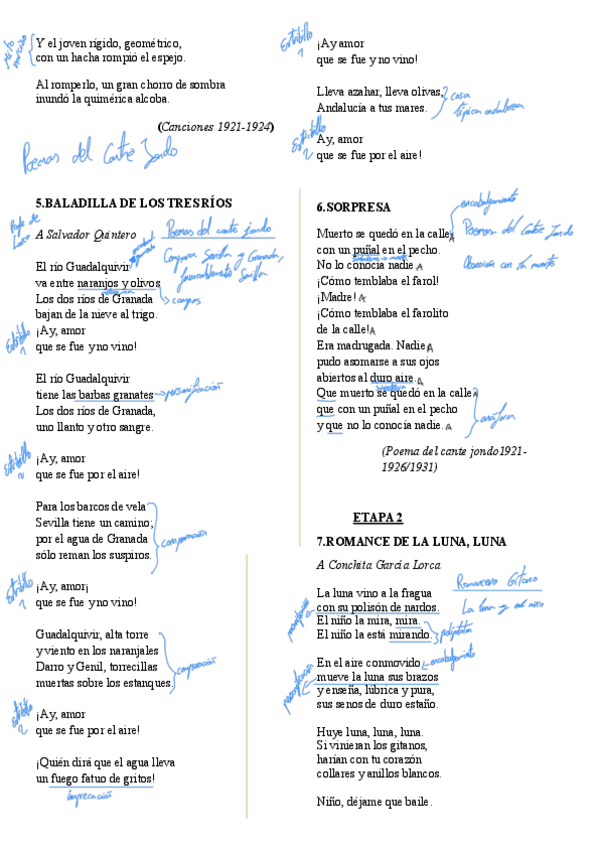 Y el joven rígido, geométrico,
con un hacha rompió el espejo.
Al romperlo, un gran chorro de sombra
inundó la quimérica alcoba.
(Canciones 1921-1924)
Poemas del Cante Jondo
5.BALADILLA DE LOS TRES RÍOS
A Salvador Quintero
Poemas del cante jondo
Compara Sevilla y Granada,
favoreciendo Sevilla
El río Guadalquivir
va entre naranjos y olivos
Los dos ríos de Granada
campos
bajan de la nieve al trigo.
Estribillo 1
¡Ay, amor
que se fue y no vino!
El río Guadalquivir
tiene las barbas granates
personificación
Los dos ríos de Granada,
uno llanto y otro sangre.
Estribillo 2
¡Ay, amor
que se fue por el aire!
Para los barcos de vela
Sevilla tiene un camino;
por el agua de Granada
comparación
sólo reman los suspiros.
Estribillo 1
¡Ay, amor¡
que se fue y no vino!
Guadalquivir, alta torre
y viento en los naranjales
Darro y Genil, torrecillas
comparación
muertas sobre los estanques.
Estribillo 2
¡Ay, amor
que se fue por el aire!
¡Quién dirá que el agua lleva
un fuego fatuo de gritos!
imprecación
Estribillo 1
¡Ay amor
que se fue y no vino!
Lleva azahar, lleva olivas,
Andalucía a tus mares.
cosa
típica andaluza
Estribillo 2
Ay, amor
que se fue por el aire!
6.SORPRESA
encabalgamiento
Muerto se quedó en la calle
Poemas del Cante Jondo
con un puñal en el pecho.
No lo conocía nadie. A
Obsesión con la muerte
¡Cómo temblaba el farol!
¡Madre! A
¡Cómo temblaba el farolito
de la calle! A
Era madrugada. Nadie A
pudo asomarse a sus ojos
abiertos al duro aire. A
Que muerto se quedó en la calle A
que con un puñal en el pecho
anáfora
y que no lo conocía nadie. A
(Poema del cante jondo1921-
1926/1931)
ETAPA 2
7.ROMANCE DE LA LUNA, LUNA
A Conchita García Lorca
Romancero Gitano
La luna vino a la fragua
con su polisón de nardos.
La luna y el niño
El niño la mira, mira.
El niño la está mirando.
En el aire conmovido
encabalgamiento
mueve la luna sus brazos
y enseña, lúbrica y pura,
sus senos de duro estaño.
Huye luna, luna, luna.
Si vinieran los gitanos,
harían con tu corazón
collares y anillos blancos.
Niño, déjame que baile.